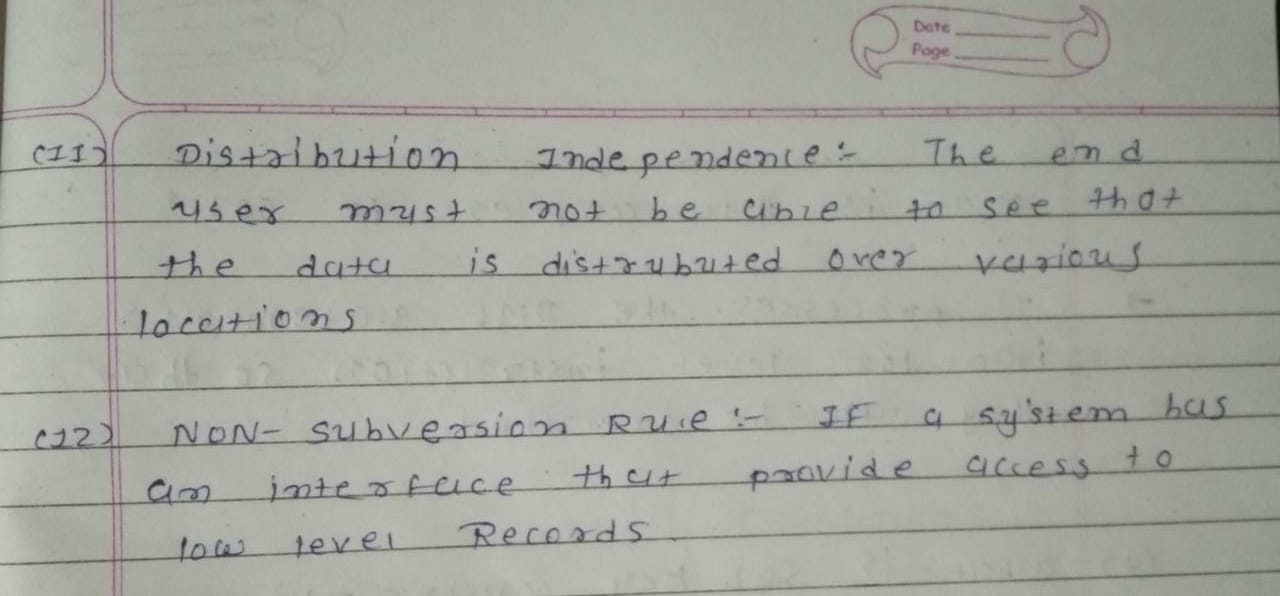 Date
Page
(11) Distribution Independence:- The end
user must not be able to see that
the data is distrubuted over various
locations
(12) NON-subversion Rule:- IF a system has
an interface that provide access to
low level Records